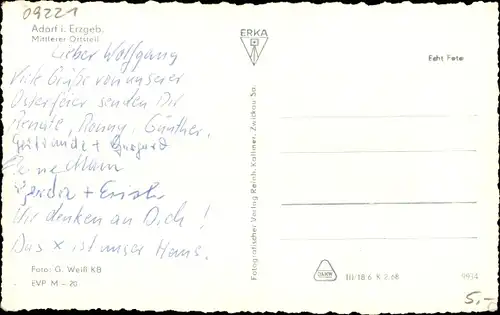 09221
Adorf i. Erzgeb.
Mittlerer Ortsteil
Lieber Wolfgang
Viele Grüße von unserer
Osterfeier senden Dir
Renate, Ronny, Günther,
Gertraude + Gerhard
Deine Mam
Gerda + Erich
Wir denken an Dich!
Das x ist unser Haus.
Foto: G. Weiß KB
EVP M - 20
ERKA
Echt Foto
Fotografischer Verlag Reich. Kallmer, Zwickau Sa.
III/18 6 K 2.68
9934
5,-